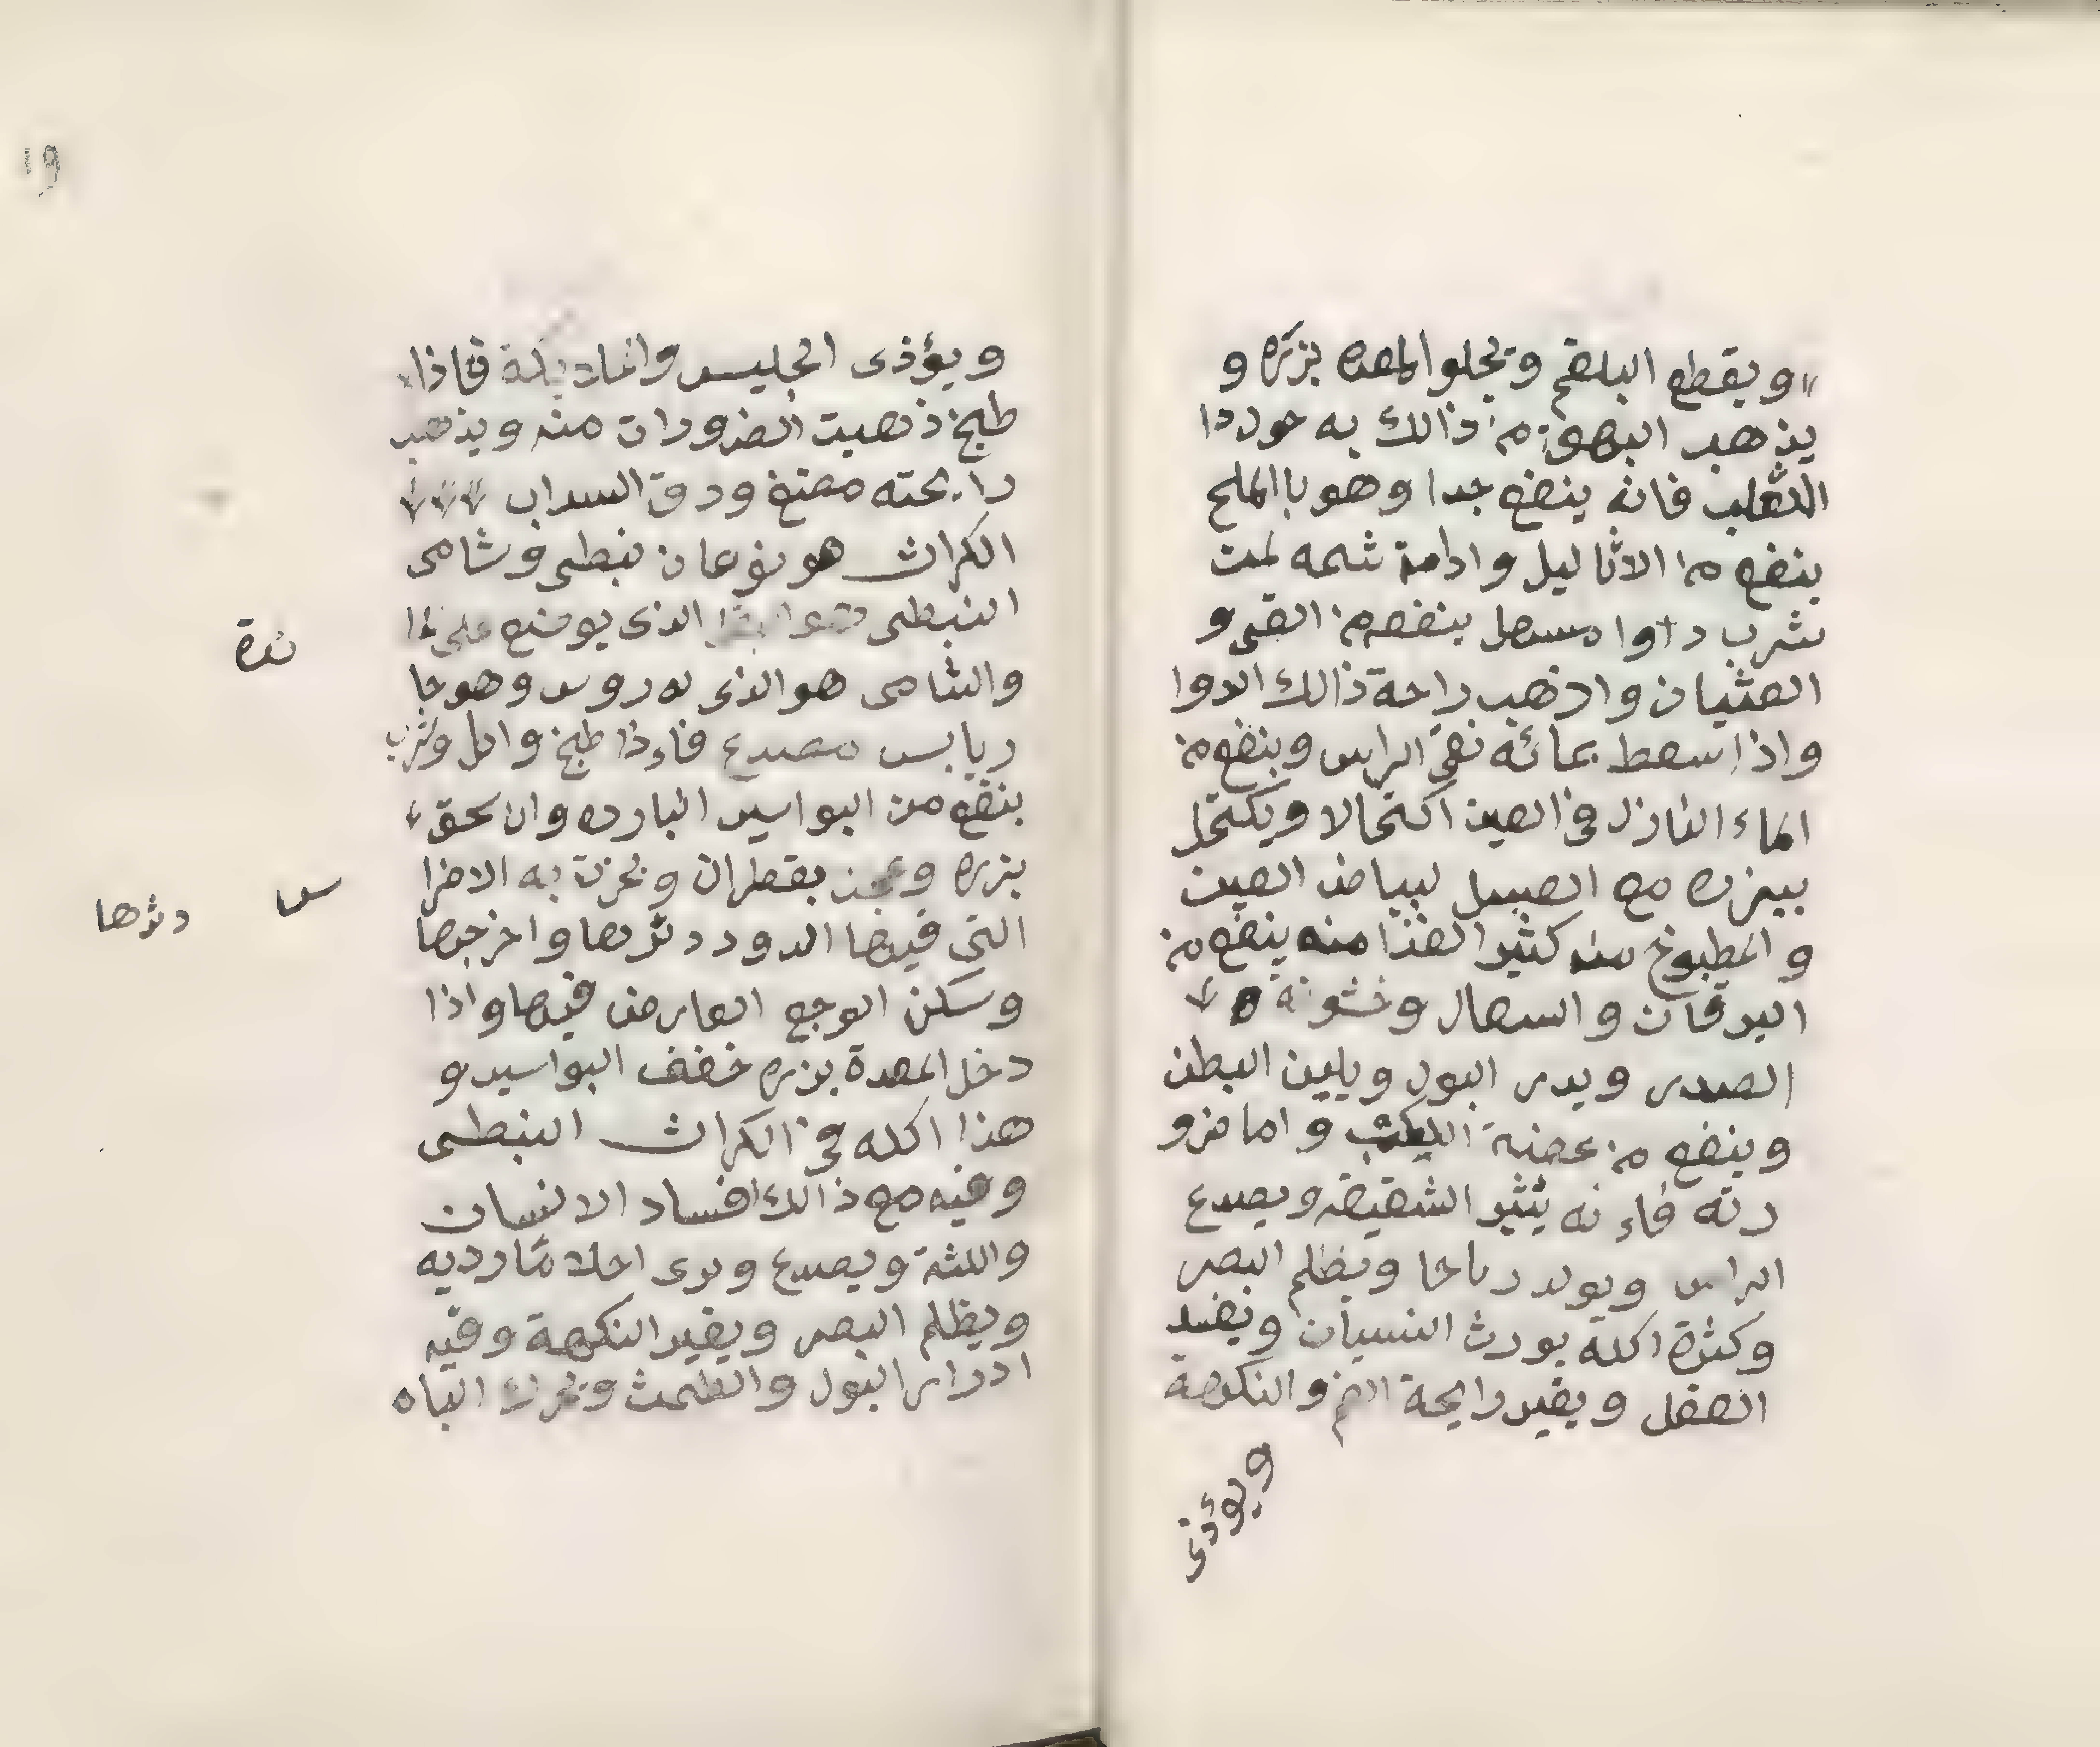 ويقطع البلغم ويجلو المعده بزره و
يذهب البهق من ذالك به حول دا
الثعلب فانه ينفع جدا وهو باالملح
ينفع من الاثاليل وادامة شمه لمن
شرب داوا مسهل ينفعه من القى و
الغثيان واذهب راحة ذالك الدوا
واذا سعط بمائه نقى الراس وينفع من
الماء النازل فى العين اكتحالا ويكتحل
ببزره مع العسل لبياض العين
والمطبوخ منه كثير الغذا منه ينفع من
اليرقان والسعال وخشونة
الصدر ويدر البول ويلين البطن
وينفع من عضة الكلب واما مزو
رته فاءنه يثير الشقيقه ويصدع
الراس ويولد رياحا ويظلم البصر
وكثرة اكله يورث النسيان ويفسد
العقل ويغير رايحة الفم والنكهة
ويؤذى
١٩
ويؤذى الجليس فاذا
طبخ ذهبت المضرورات منه ويذهب
رايحته مضغ ورق السداب
الكراث هو نوعان نبطى وشامى
النبطى هو الذى يوضع على
والشامى هو الذى له روس وهو حا
ريابس مصدع فاءذا طبخ واكل وشرب
ينفع من البواسير البارده وان سحق
بزره وعجن بقطران وبخرت به الاضرا
س
التى فيها الدود نثرها واخرجها
نثرها
وسكن الوجع العارض فيها واذا
دخل المعدة بزره خفف البواسير و
هذا اكله فى الكراث النبطى
وفيه مع ذالك افساد الانسان
واللثة ويصدع ويرى احلاما رديه
ويظلم البصر ويغير النكهة وفيه
ادرار البول والطمث ويحرك الباه